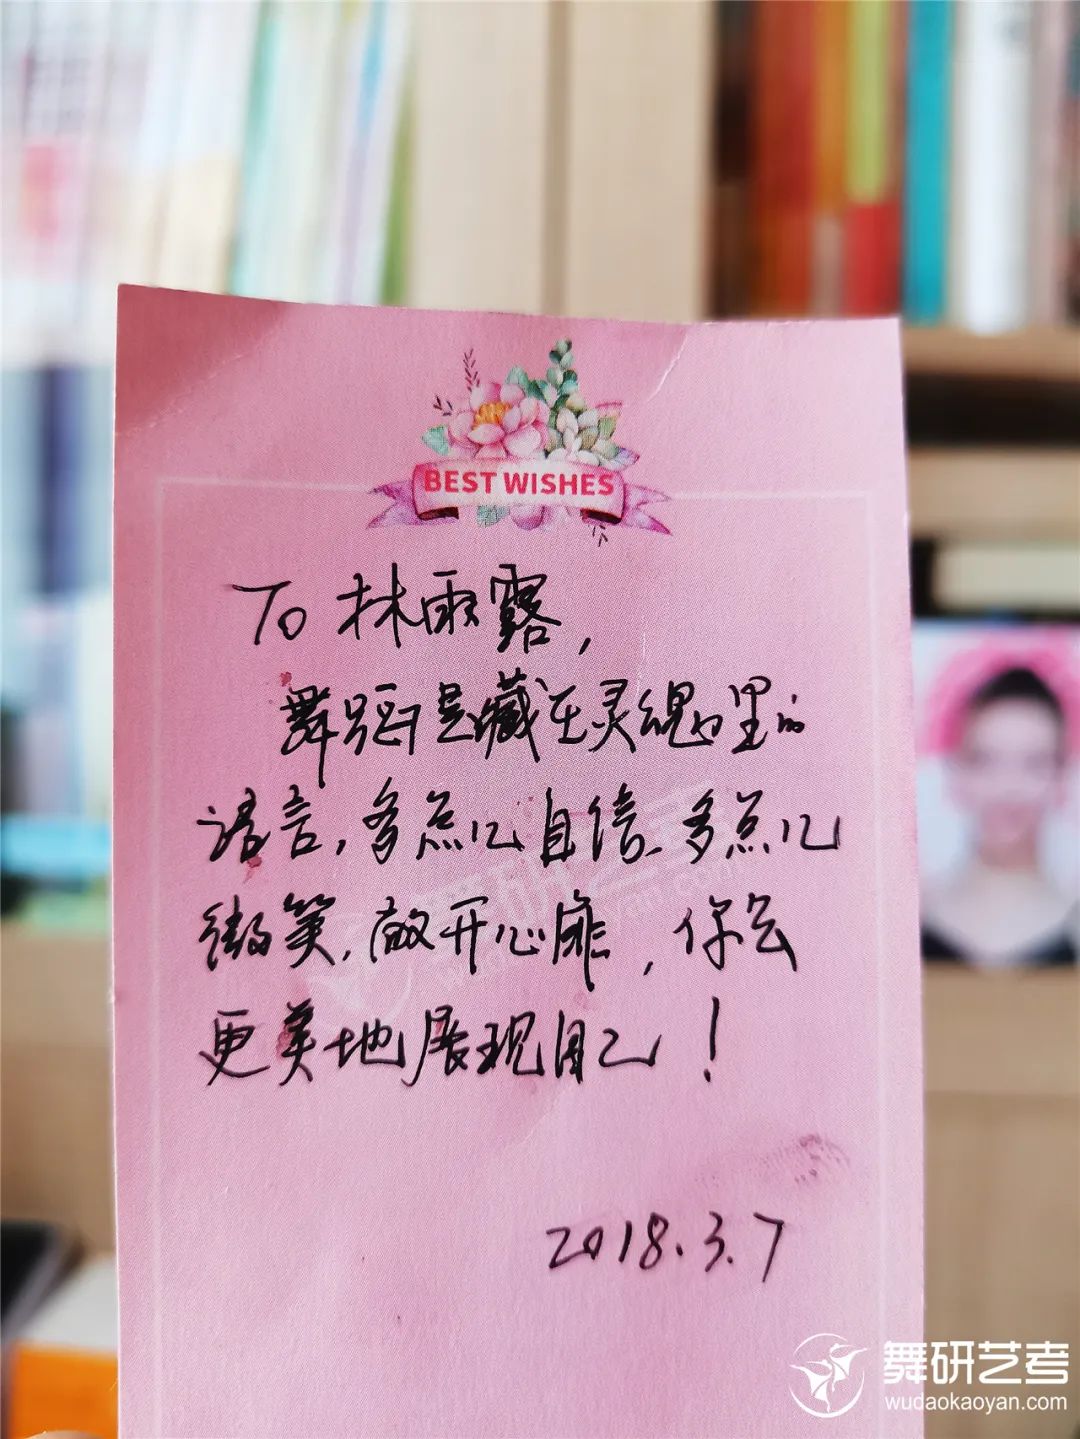 BEST WISHES
To 林雨露,
舞蹈是藏在灵魂里的
语言,多点儿自信、多点儿
微笑,敞开心扉,你会
更美地展现自己!
2018.3.7
舞研艺考
wudaokaoyan.com